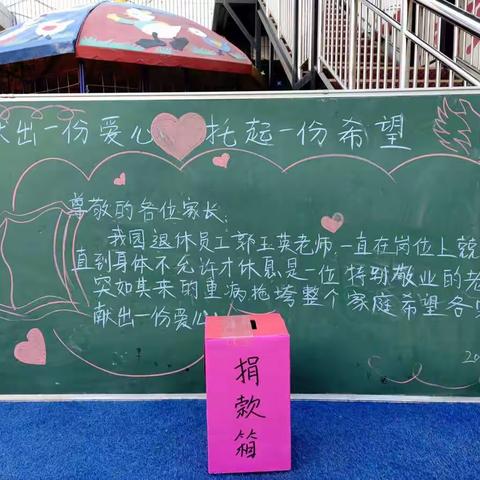 献出一份爱心 托起一份希望
尊敬的各位家长:
我园退休员工郭玉英老师一直在岗位上兢
直到身体不允许才休息是一位特别敬业的老
突如其来的重病拖垮整个家庭希望各
献出一份爱心
捐款箱